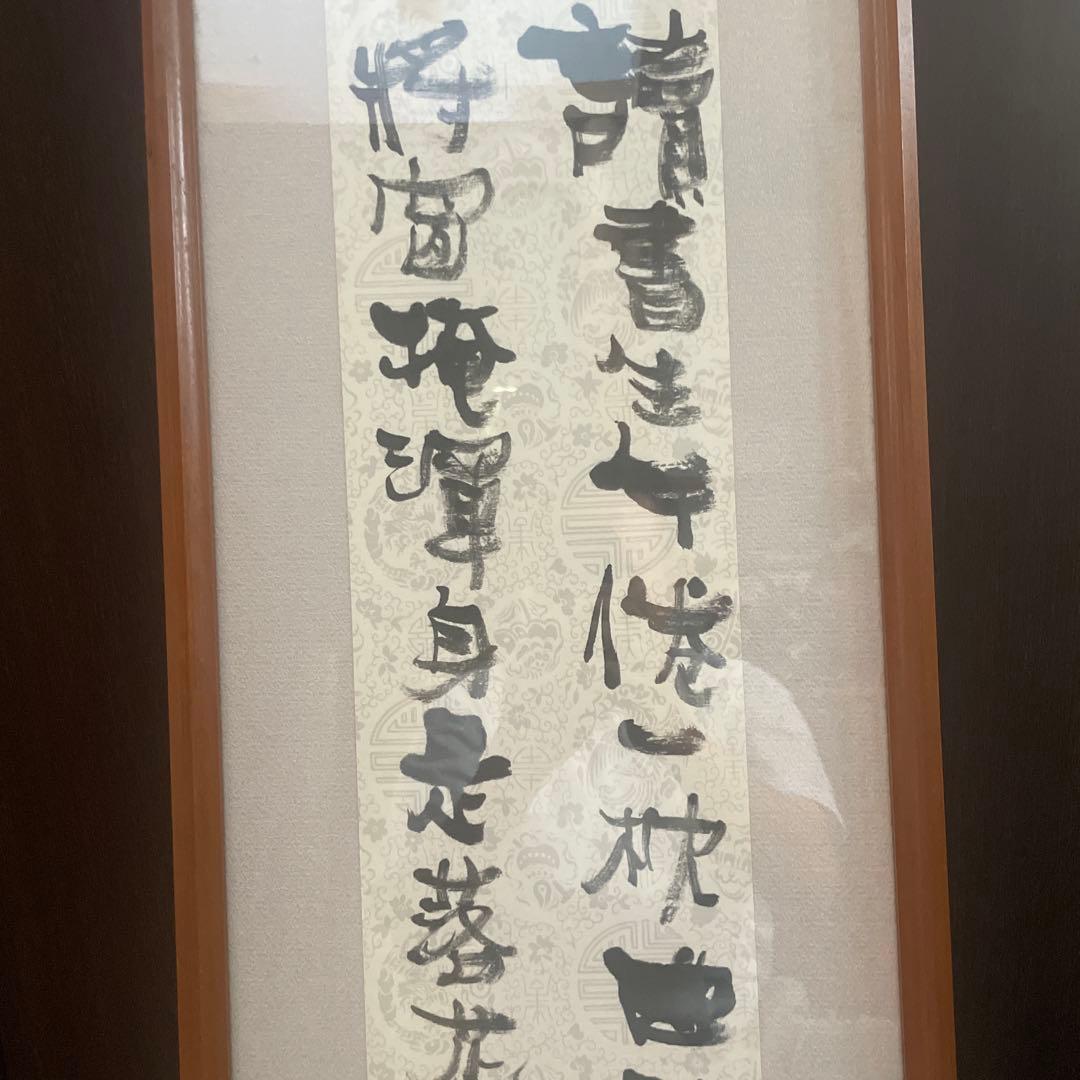 讀書生午倦一枕曲
將窗掩渾身是落花